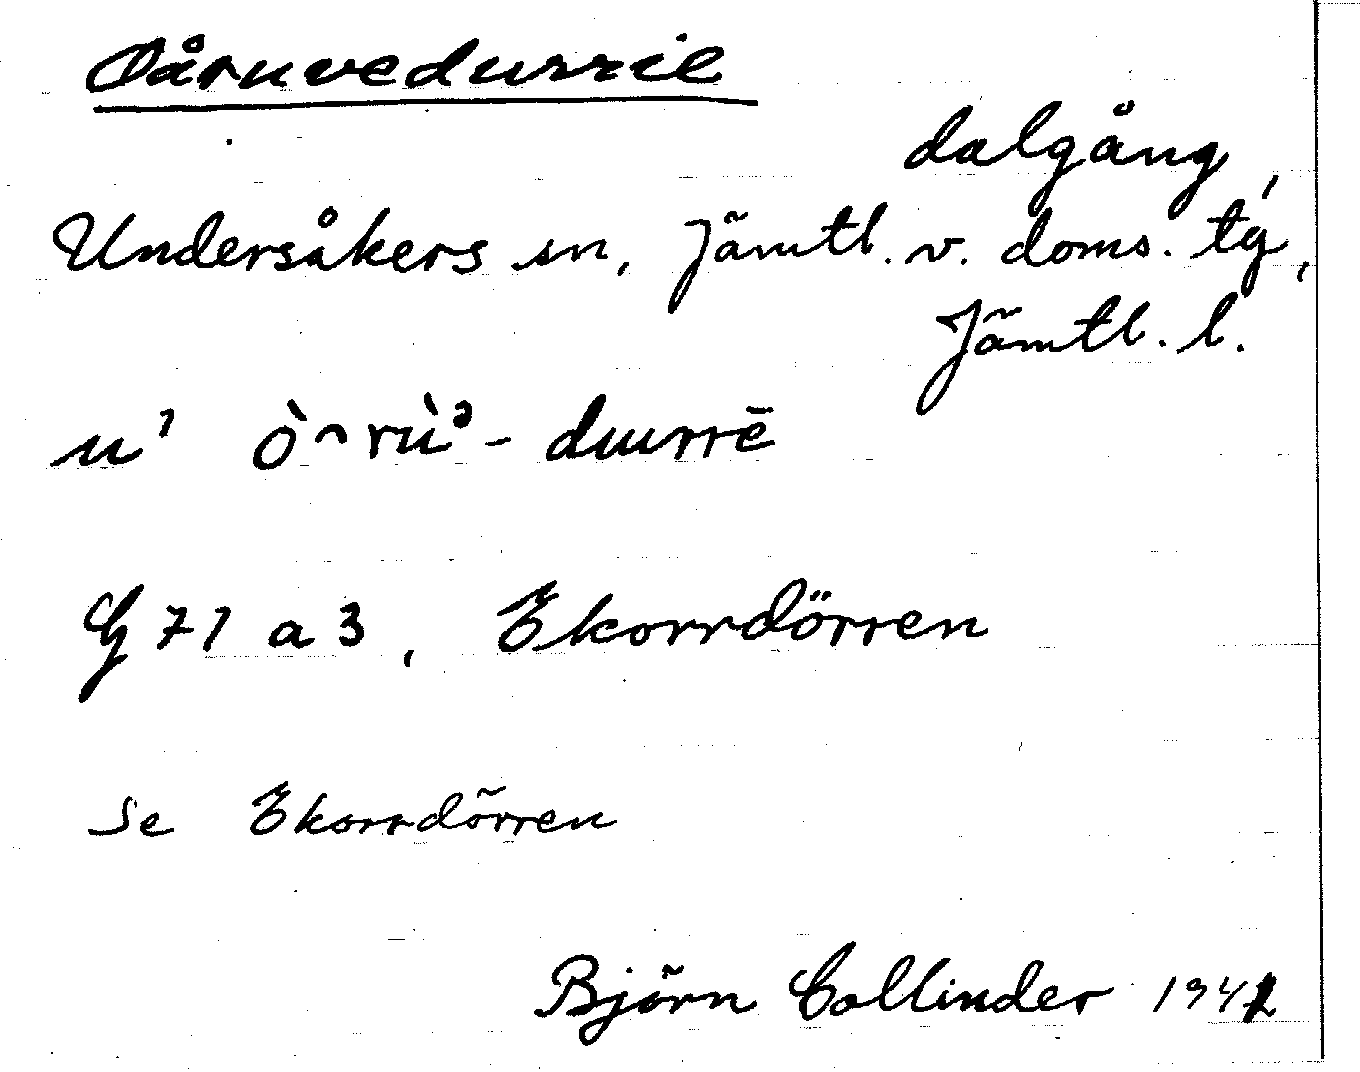 Oåruvedurrie
dalgång,
Undersåkers sn, Jämtl. v. doms. tg,
Jämtl. l.
n' ò⌢rù̀ᵊ-duurrē
G 71 a 3, Ekorrdörren
Se Ekorrdörren
Björn Collinder 1942